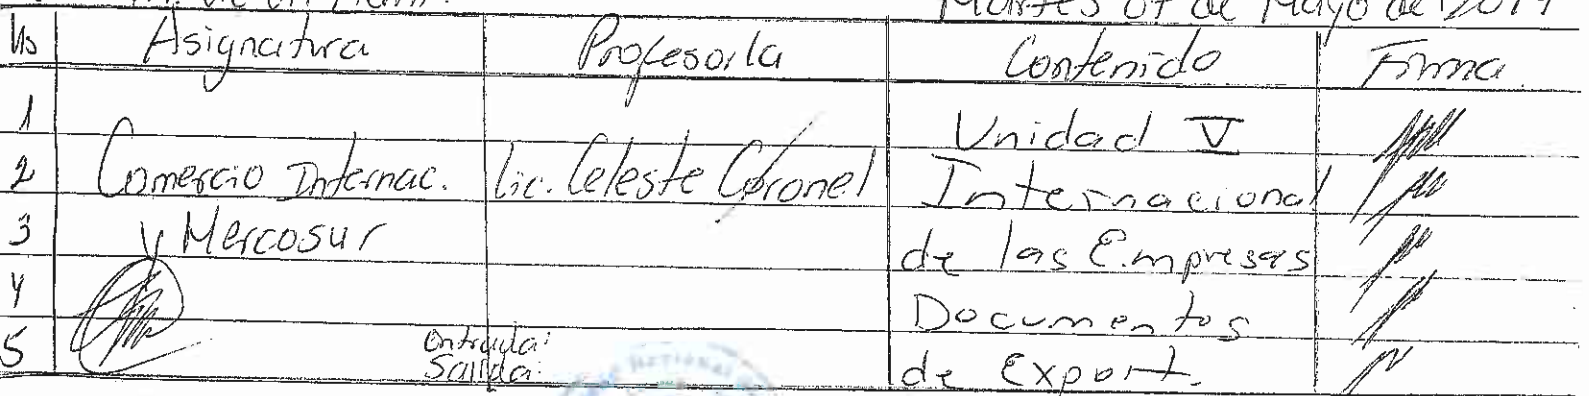 Martes 07 de Mayo de 2019
Hs Asignatura Profesor/la Contenido Firma
1 Unidad V
2 Comercio Internac. Lic. Celeste Coronel Internacional
3 y Mercosur de las Empresas
4 Documentos
5 Entrada: de Export.
Salida: